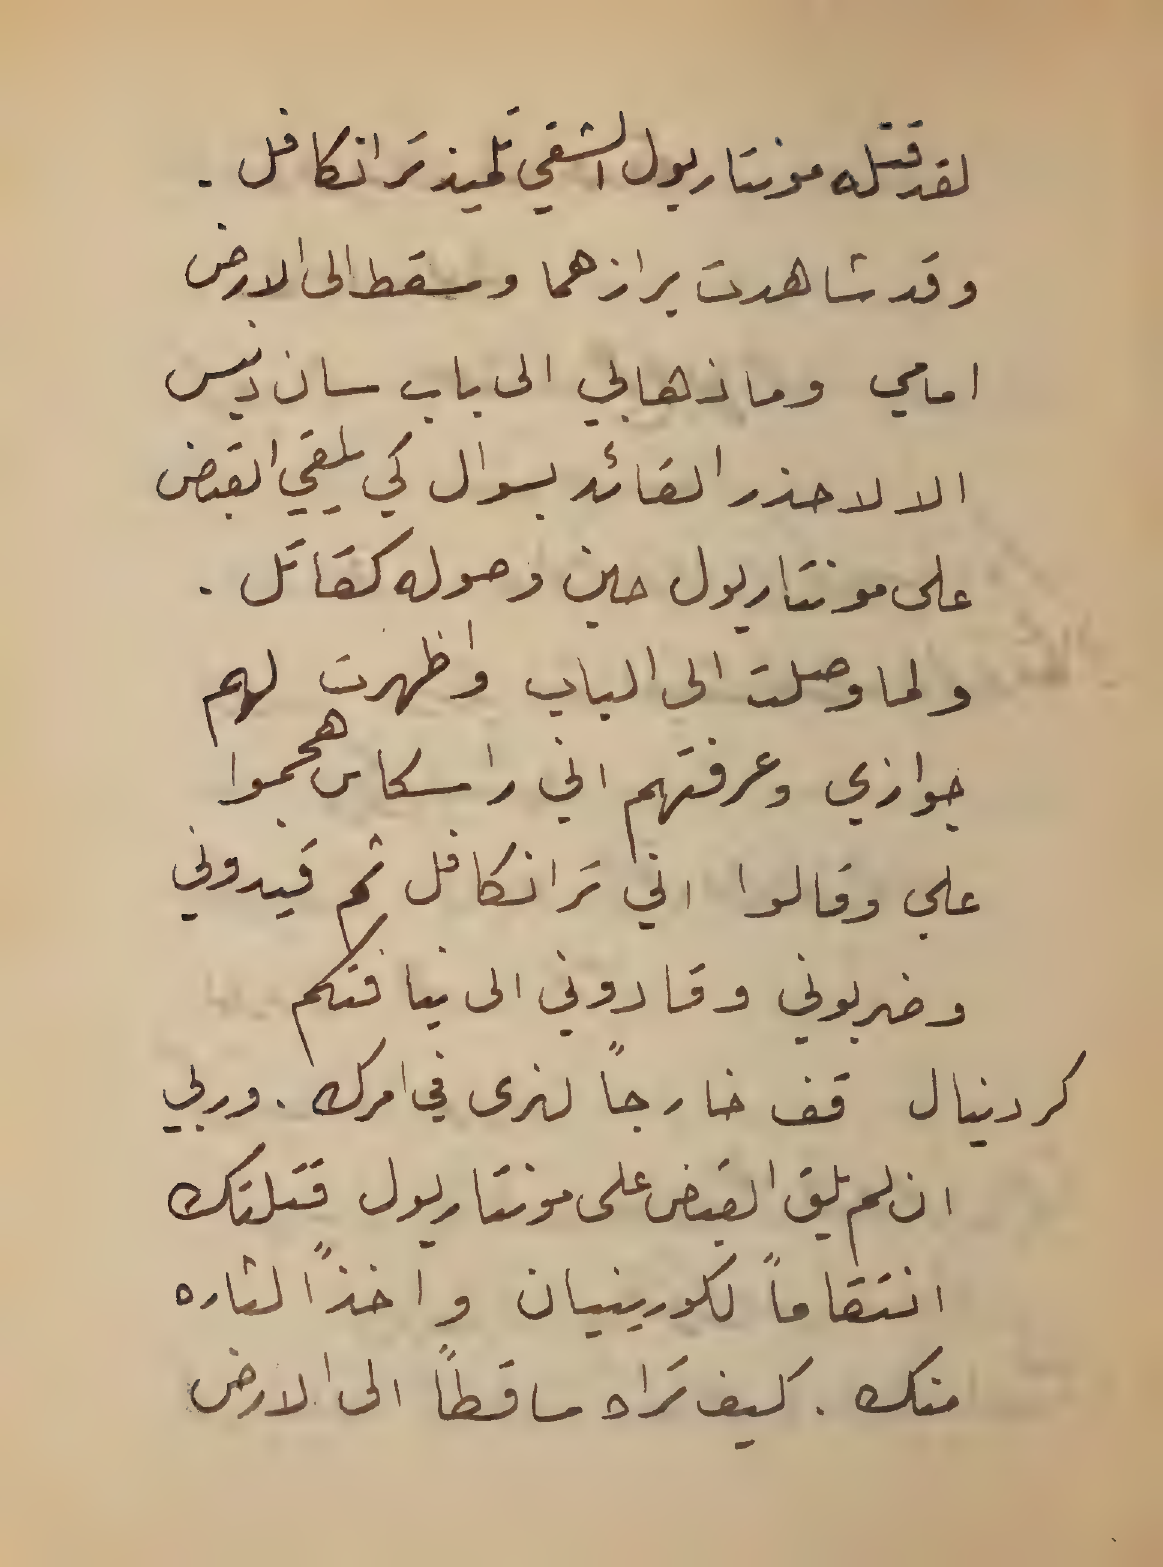 لقد قتله مونتاريول الشقي تلميذ ترانكافل .
وقد شاهدت برازهما وسقط الى الارض
امامي وما ذهابي الى باب سان دنيس
الا لاحذر القائد بسوال كي يلقي القبض
على مونتاريول حين وصوله كقاتل .
ولما وصلت الى الباب واظهرت لهم
جوازي وعرفتهم اني راسكاس هجموا
علي وقالوا اني ترانكافل ثم قيدوني
وضربوني وقادوني الى نيافتكم
كردينال قف خارجاً لنرى في امرك . وربي
ان لم يلق القبض على مونتاريول قتلتك
انتقاماً لكورينيان واخذاً لثاره
منك . كيف تراه ساقطاً الى الارض